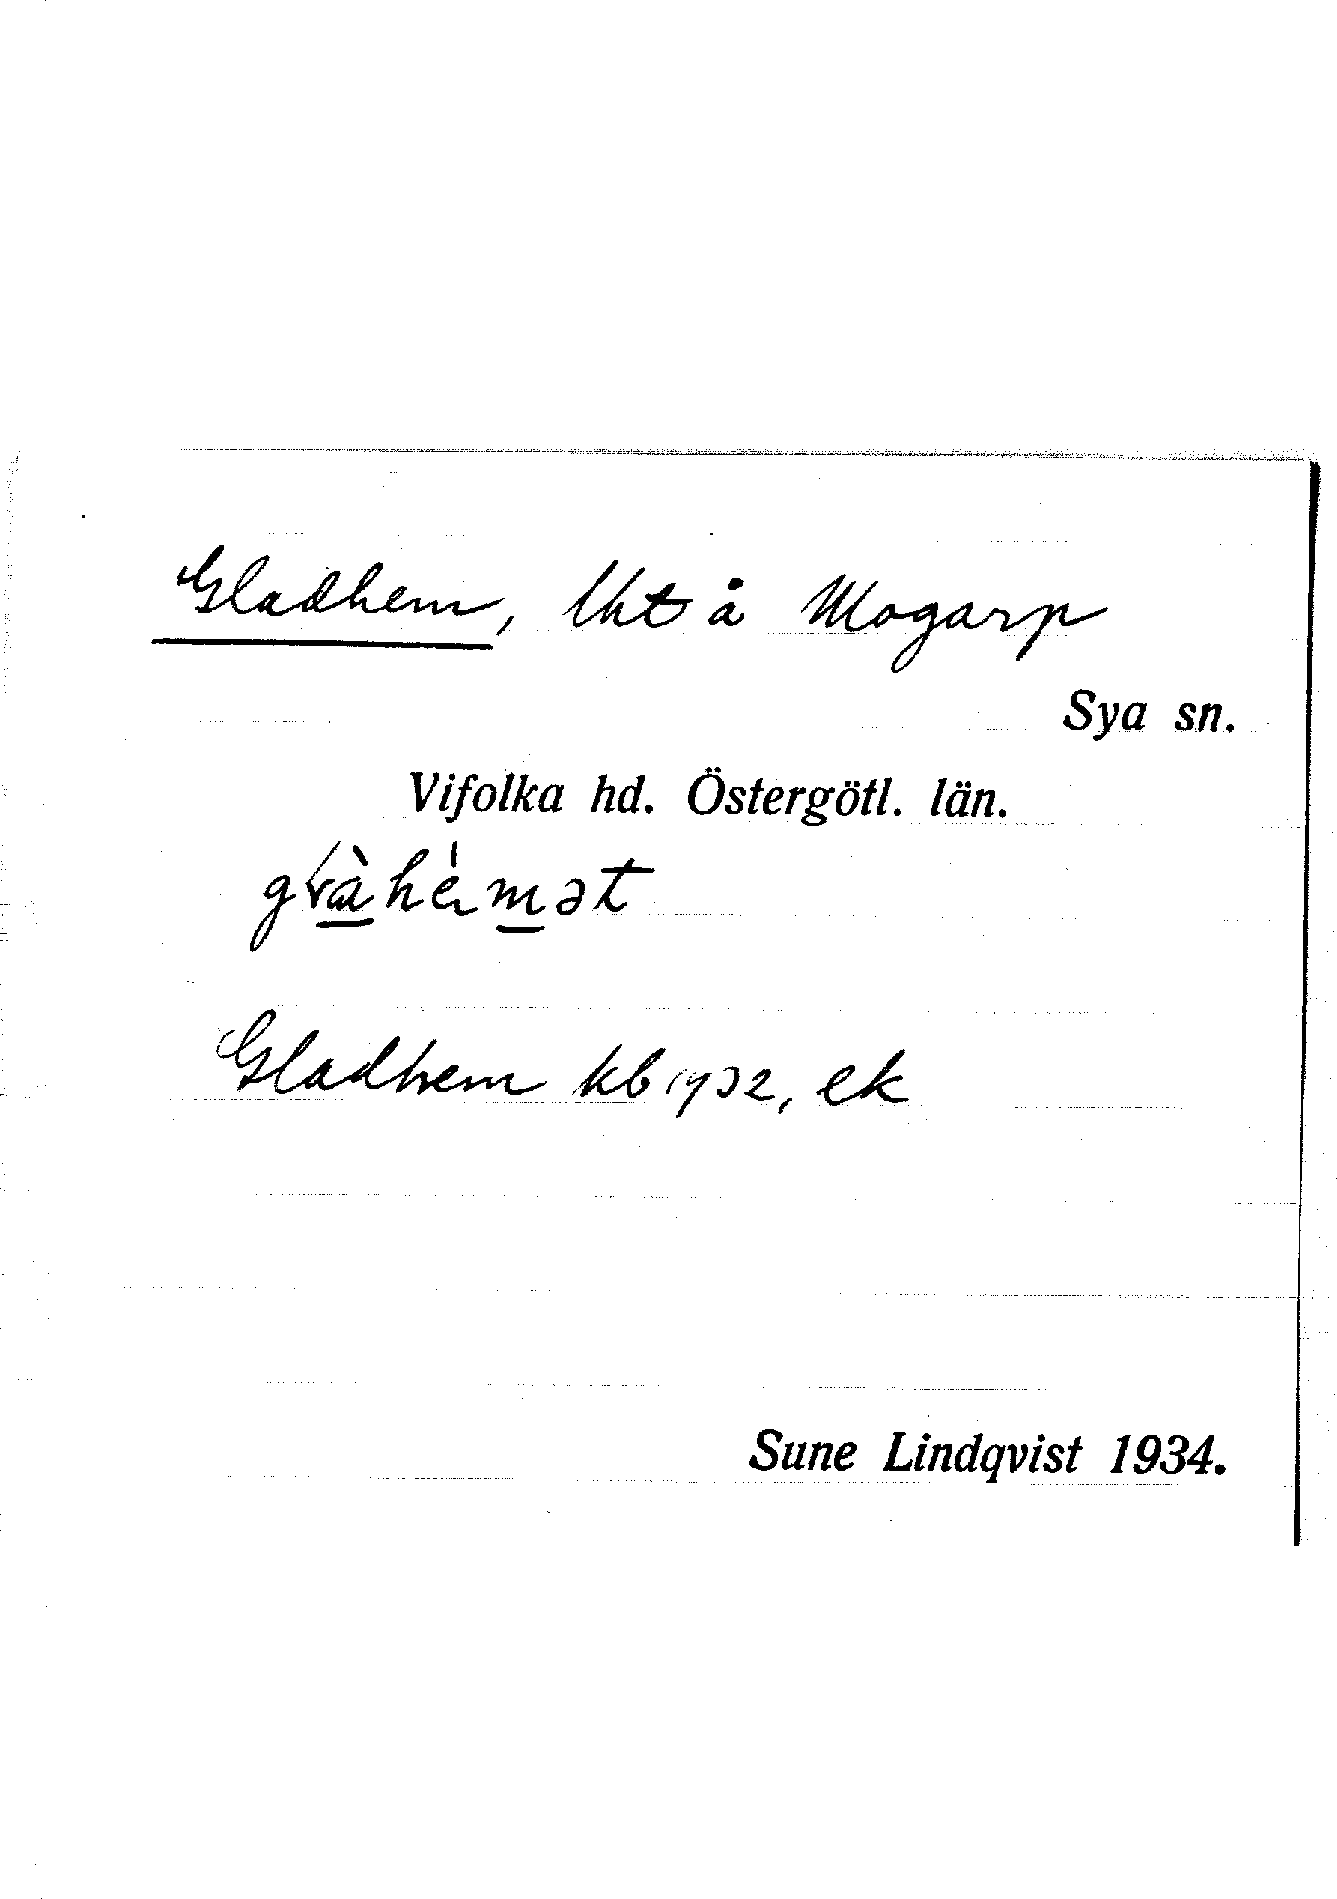 Gladhem, lht å Mogarp
Sya sn.
Vifolka hd. Östergötl. län.
Gladhem kb 1932, ek
Sune Lindqvist 1934.